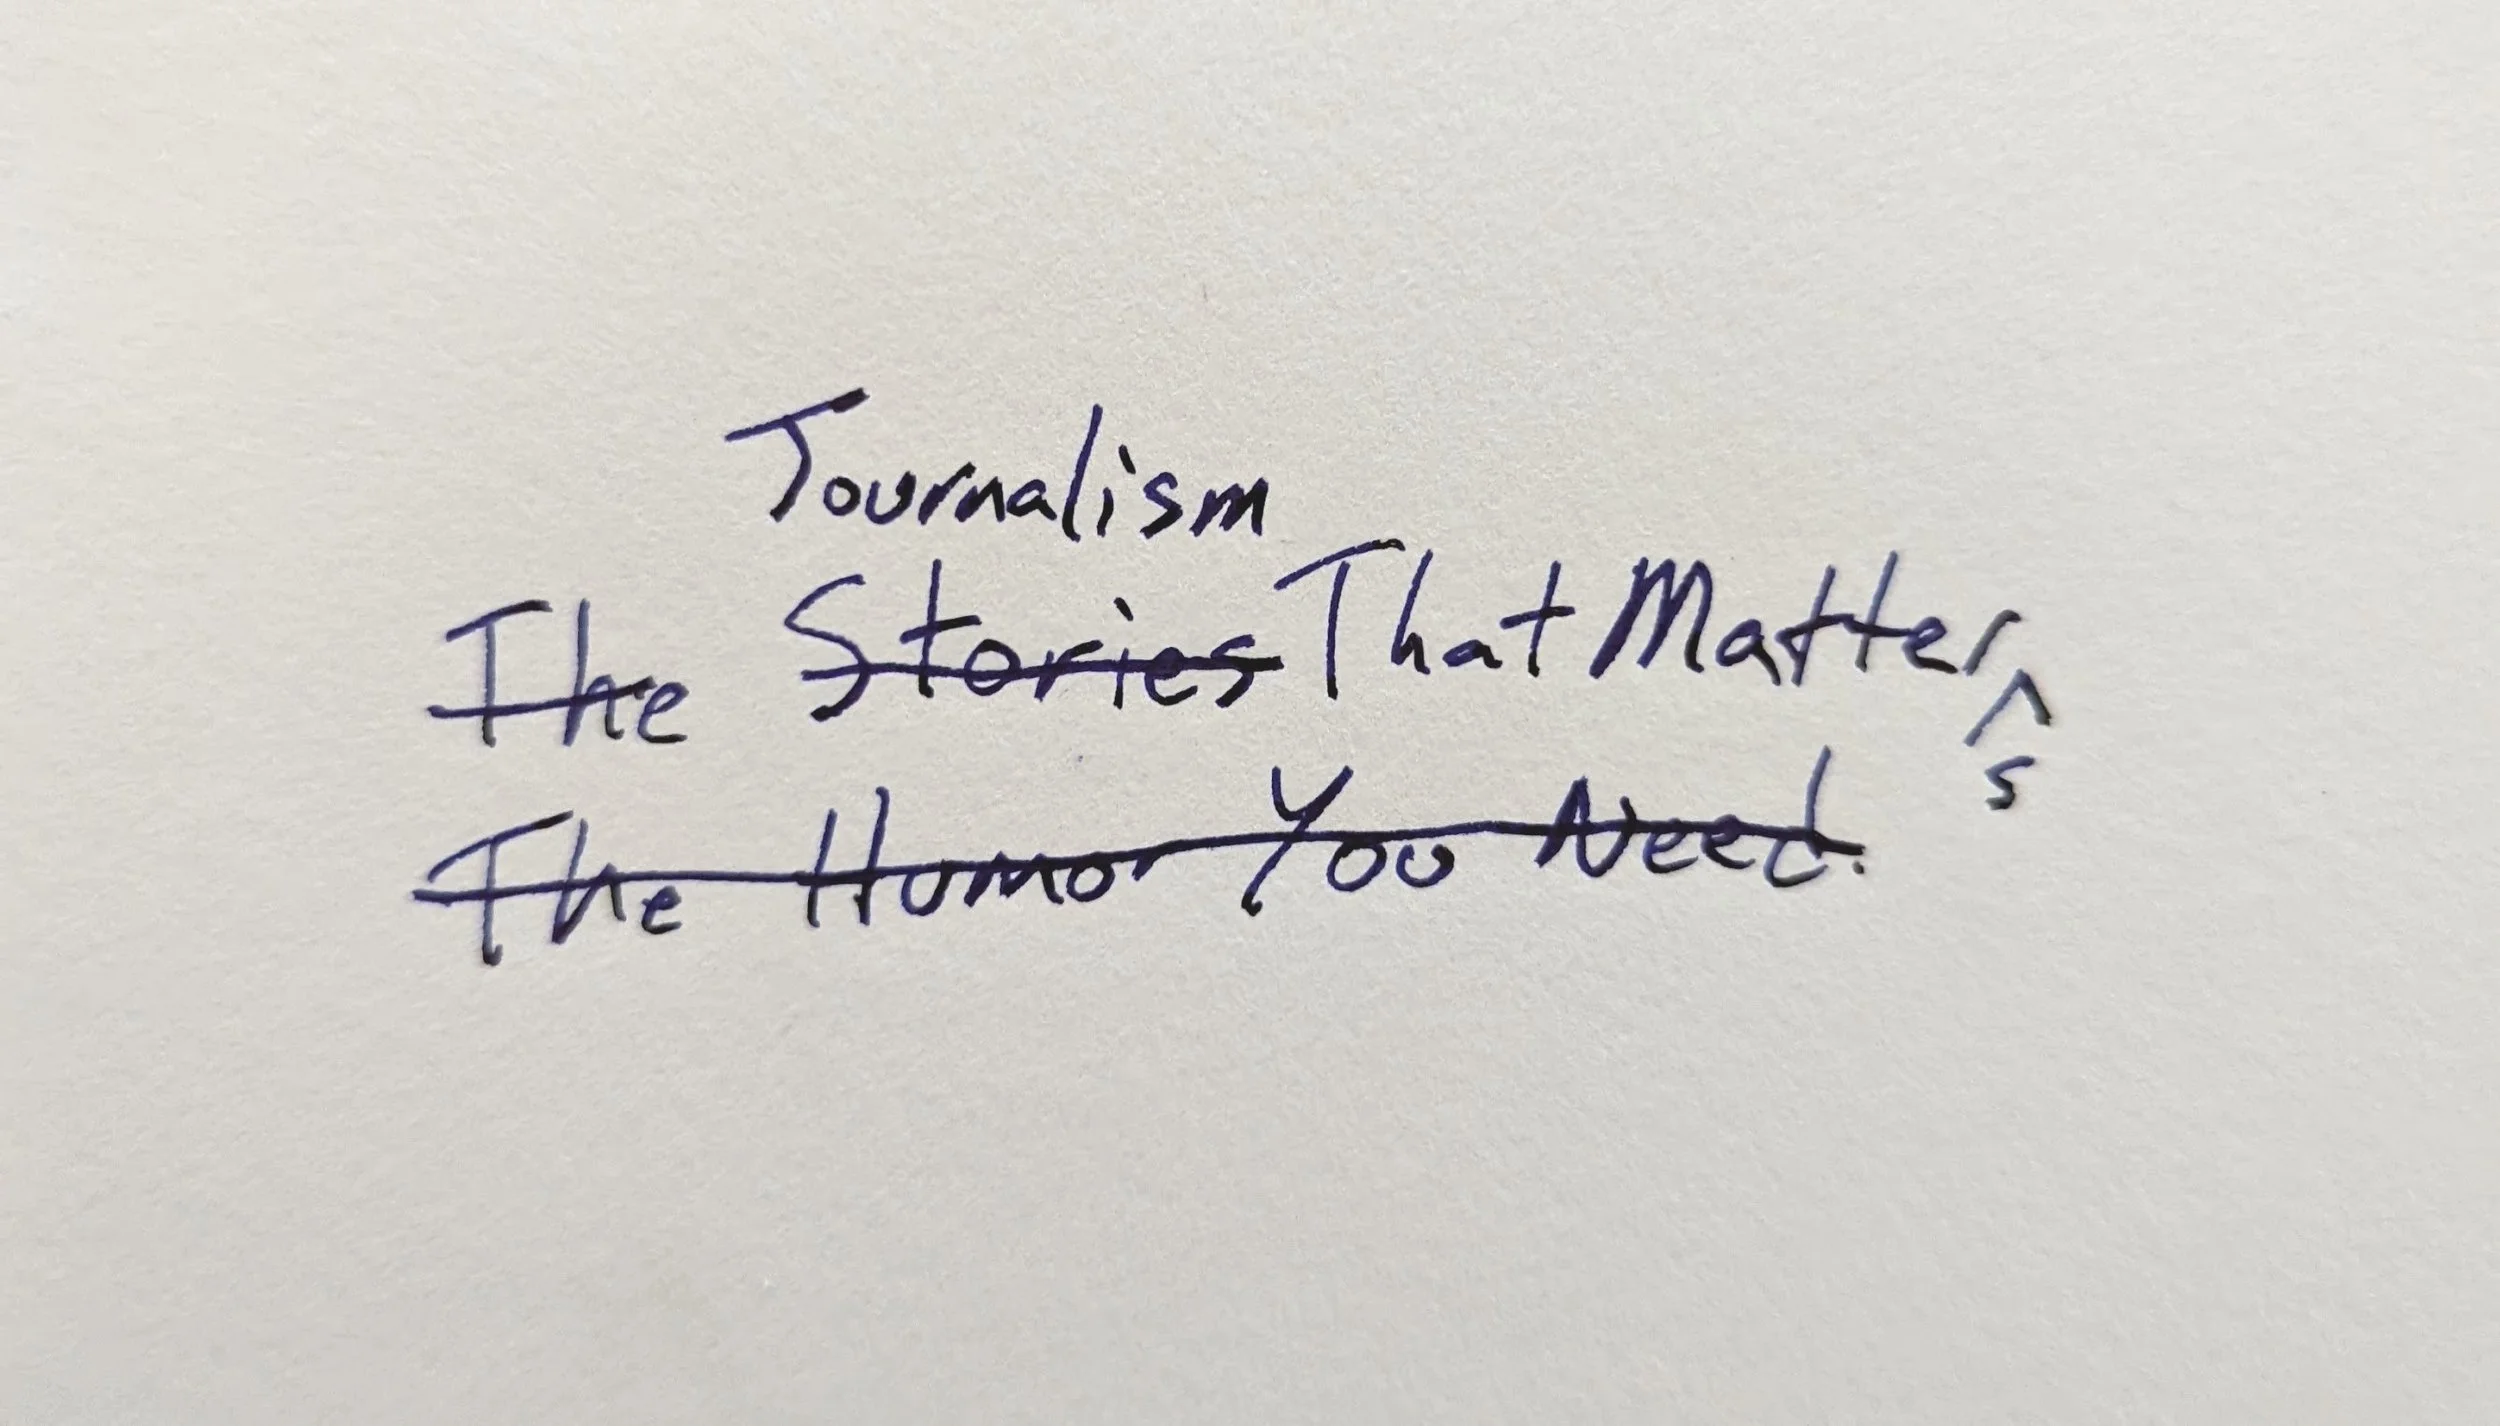 Journalism
The Stories That Matter
^
s
The Humor You Need.